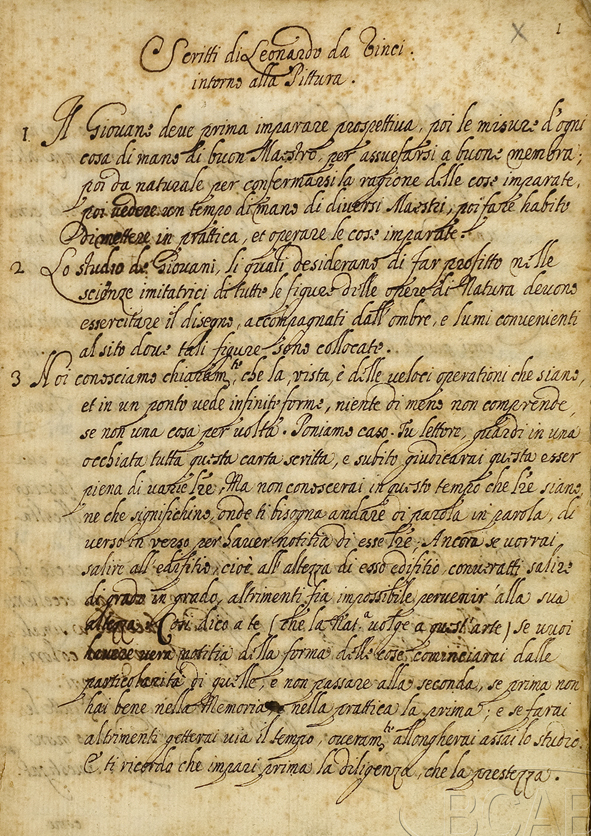 1
Scritti di Leonardo da Vinci.
intorno alla Pittura.
1 Il Giovane deve prima imparare prospettiva, poi le misure d'ogni
cosa di mano di buon Maestro, per assuefarsi a buone membra;
poi da naturale per confermarsi la ragione delle cose imparate,
poi vedere un tempo di mano di diversi Maestri, poi fare habito
di mettere in prattica, et operare le cose imparate.
2 Lo studio de Giovani, li quali desiderano di far profitto nelle
scienze imitatrici di tutte le figure delle opere di Natura devono
essercitare il disegno, accompagnati dall'ombre, e lumi convenienti
al sito dove tali figure sono collocate.
3 Noi conosciamo chiaram.te, che la vista, è delle veloci operationi che siano,
et in un ponto vede infinite forme, niente di meno non comprende,
se non una cosa per volta. Poniamo caso. Tu lettore, guardi in una
occhiata tutta questa carta scritta, e subito giudicarai questa esser
piena di varie lre, Ma non conoscerai in questo tempo che lre siano,
ne che significhino, onde ti bisogna andare di parola in parola, di
verso in verso per haver notitia di esse lre. Ancora se vorrai
salire all'edifitio, cioè all'altezza di esso edifitio converatti salire
di grado in grado, altrimenti fia impossibile pervenir alla sua
altezza e Cosi dico a te (che la Nat.a volge a quest'arte) se vuoi
havere vera notitia della forma delle cose, cominciarai dalle
particolarità di quelle, e non passare alla seconda, se prima non
hai bene nella Memoria e nella prattica la prima; e se farai
altrimenti getterai via il tempo, overam.te allongherai assai lo studio.
E ti ricordo che impari prima la diligenza, che la prestezza.
BCAB